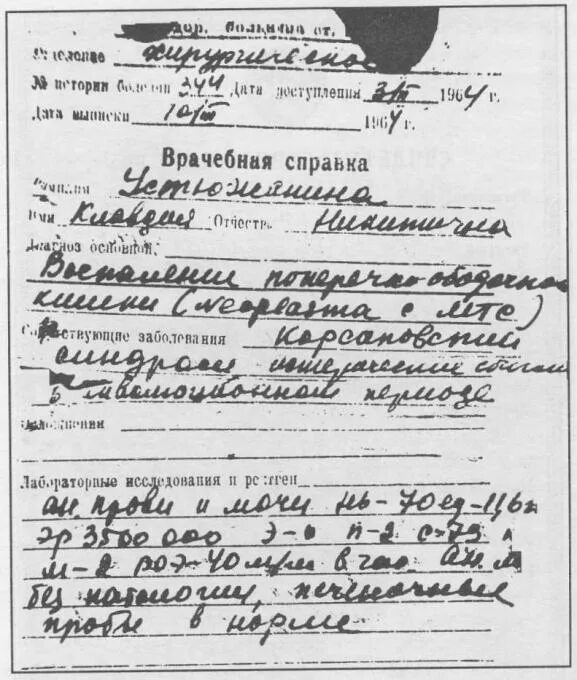 дор. больница ст.
Отделение хирургическое
№ истории болезни 344 Дата поступления 3/III 1964 г.
Дата выписки 10/III 1964 г.
Врачебная справка
Фамилия Устюжанина
Имя Клавдия Отчество Никитична
Диагноз основной
Воспаление поперечно-ободочной
кишки (neoplasma с МТС)
Сопутствующие заболевания Корсаковский
синдром истерический
в инволюционном периоде
Осложнения
Лабораторные исследования и рентген
ан крови и мочи Нь-70ед-
Эр 3500 000 э- п-2 с-73
м-2 РОЭ-40 м/м в час Ан. м
без патологии, печеночные
пробы в норме